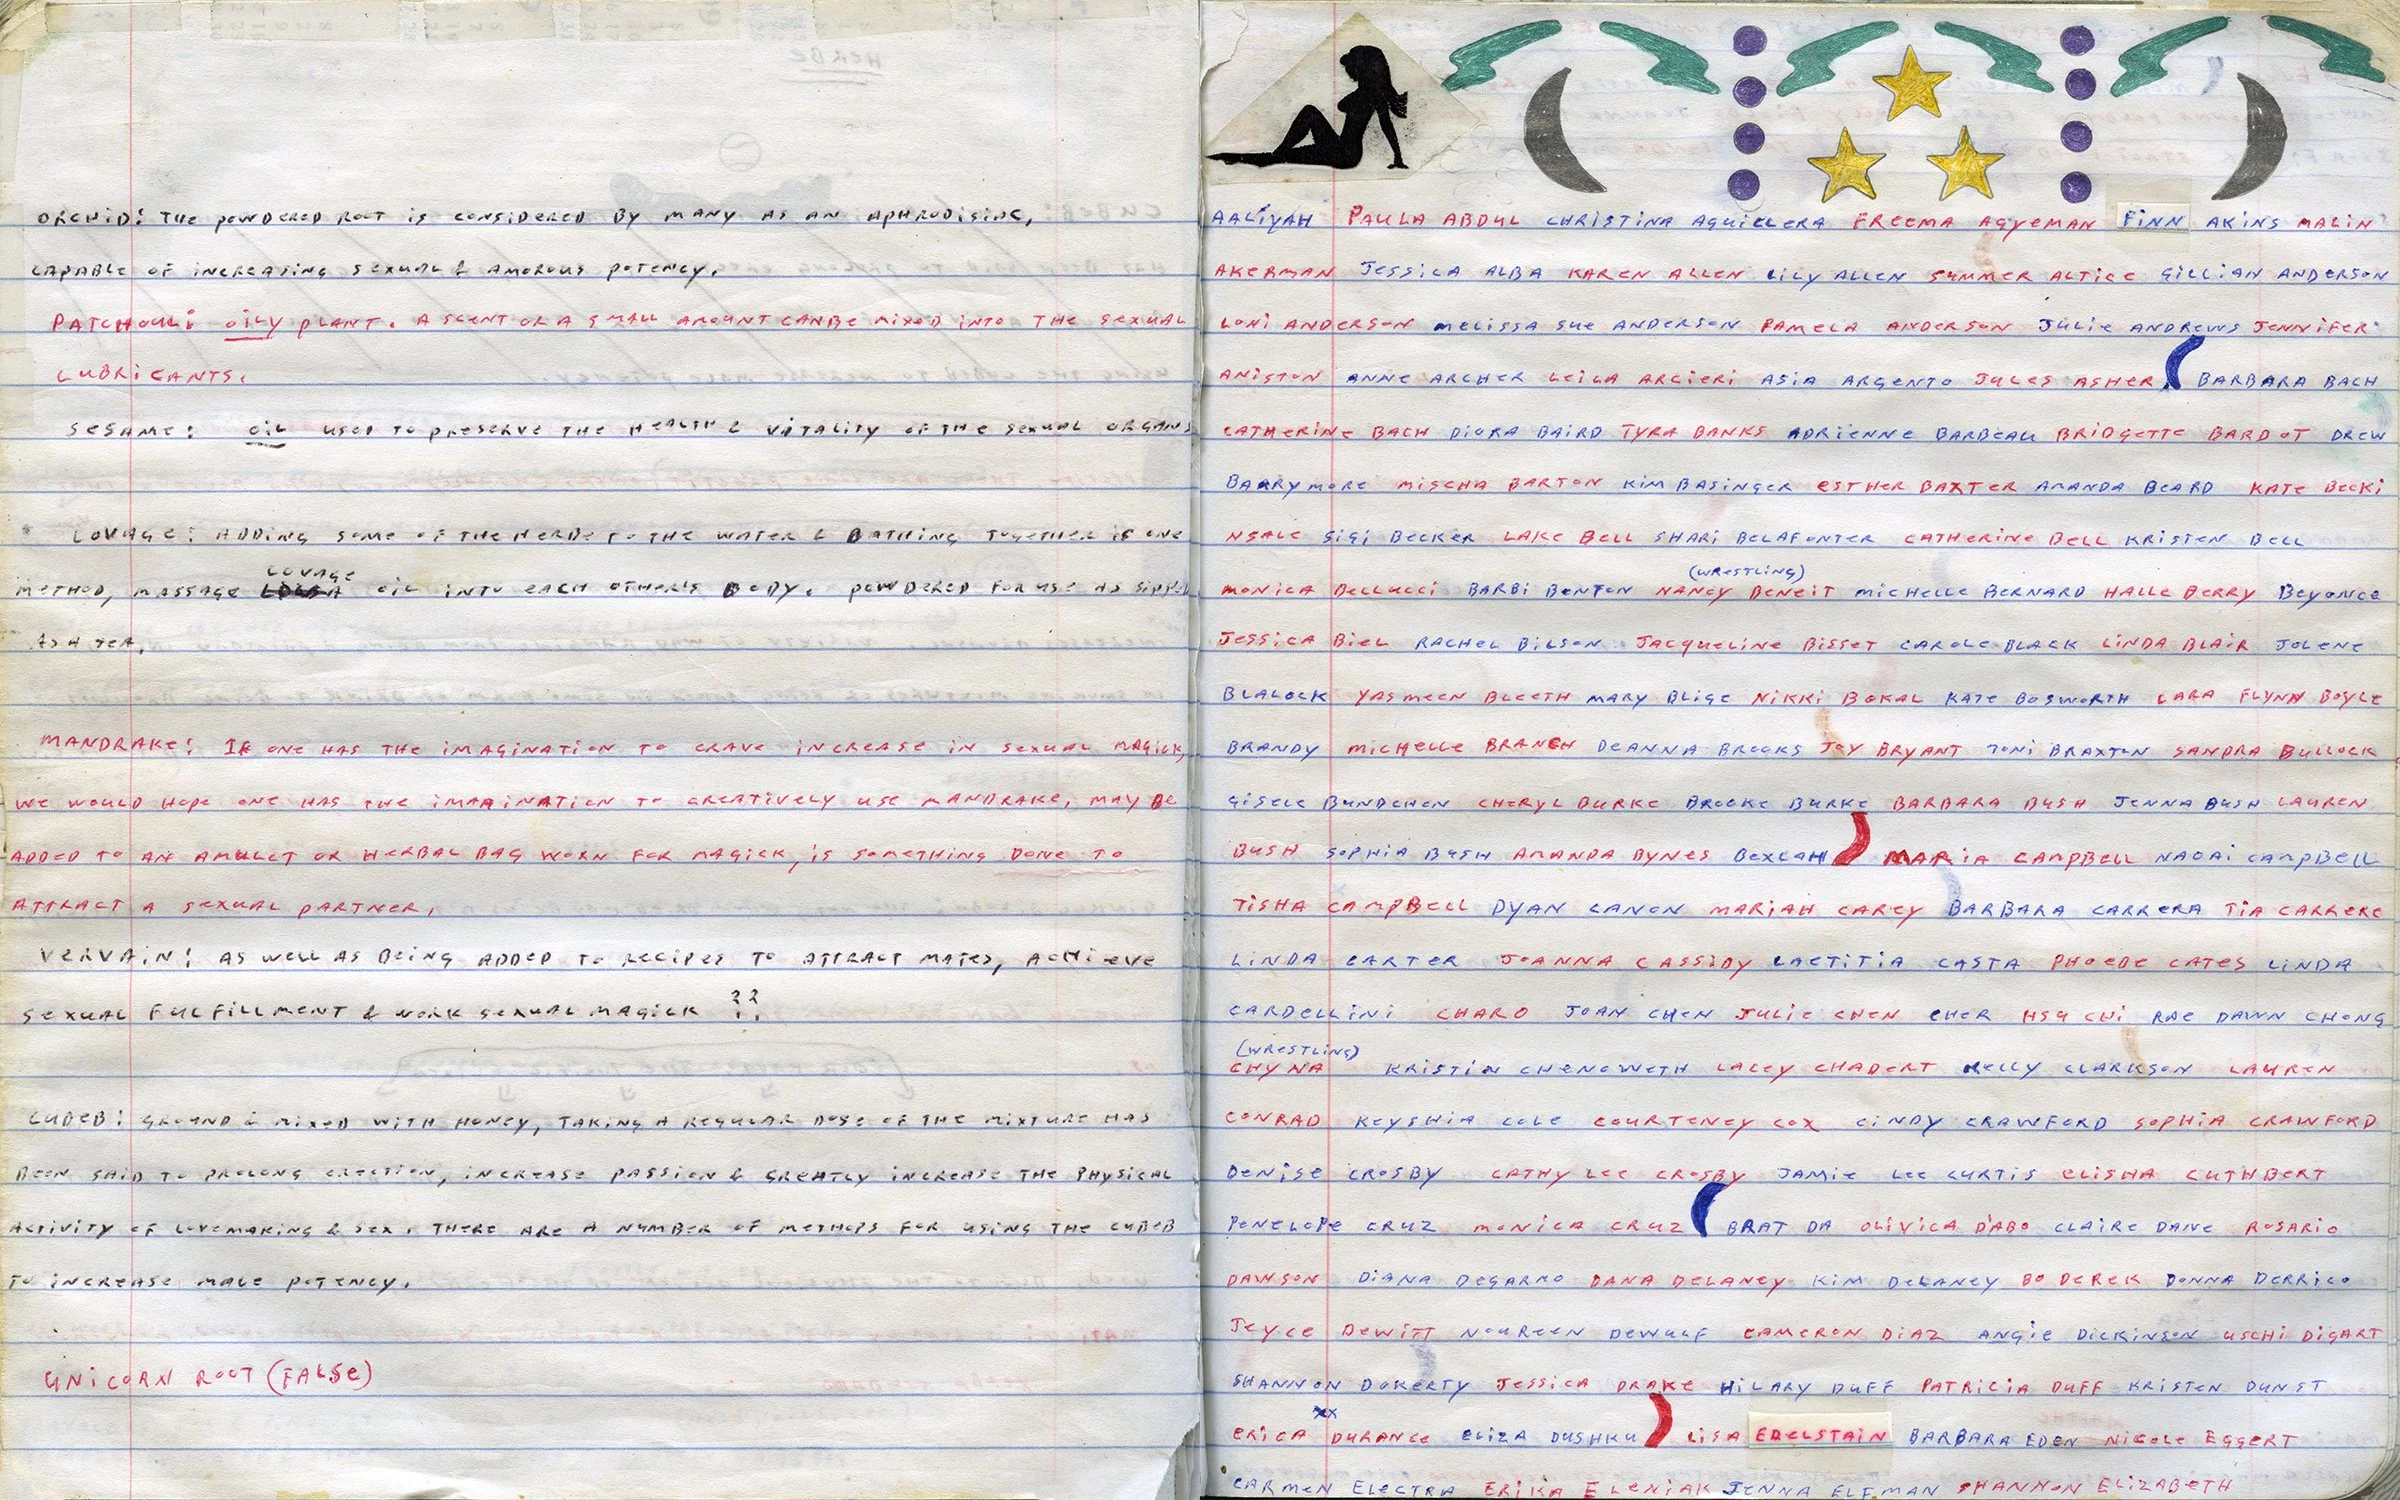 ORCHID: THE POWDERED ROOT IS CONSIDERED BY MANY AS AN APHRODISIAC,
CAPABLE OF INCREASING SEXUAL & AMOROUS POTENCY.
PATCHOULI: OILY PLANT. A SCENT OR A SMALL AMOUNT CANBE MIXED INTO THE SEXUAL
LUBRICANTS.
SESAME: OIL USED TO PRESERVE THE HEALTH & VITALITY OF THE SEXUAL ORGANS
LOVAGE: ADDING SOME OF THE HERBE TO THE WATER & BATHING TOGETHER IS ONE
LOVAGE
METHOD, MASSAGE OIL INTO EACH OTHER'S BODY. POWDERED FOR USE AS SIPPED
AS A TEA.
MANDRAKE: IF ONE HAS THE IMAGINATION TO CRAVE INCREASE IN SEXUAL MAGICK,
WE WOULD HOPE ONE HAS THE IMAGINATION TO CREATIVELY USE MANDRAKE, MAY BE
ADDED TO AN AMULET OR HERBAL BAG WORN FOR MAGICK, IS SOMETHING DONE TO
ATTRACT A SEXUAL PARTNER.
VERVAIN: AS WELL AS BEING ADDED TO RECIPES TO ATTRACT MATES, ACHIEVE
SEXUAL FULFILLMENT & WORK SEXUAL MAGICK ??
CUBEB: GROUND & MIXED WITH HONEY, TAKING A REGULAR DOSE OF THE MIXTURE HAS
BEEN SAID TO PROLONG ERECTION, INCREASE PASSION & GREATLY INCREASE THE PHYSICAL
ACTIVITY OF LOVEMAKING & SEX. THERE ARE A NUMBER OF METHODS FOR USING THE CUBEB
TO INCREASE MALE POTENCY.
UNICORN ROOT (FALSE)
AALIYAH PAULA ABDUL CHRISTINA AQUILLERA FREEMA AGYEMAN FINN AKINS MALIN
AKERMAN JESSICA ALBA KAREN ALLEN LILY ALLEN SUMMER ALTICE GILLIAN ANDERSON
LONI ANDERSON MELISSA SUE ANDERSON PAMELA ANDERSON JULIE ANDREWS JENNIFER
ANISTON ANNE ARCHER LEILA ARCIERI ASIA ARGENTO JULES ASHER BARBARA BACH
CATHERINE BACH DIORA BAIRD TYRA BANKS ADRIENNE BARBEAU BRIDGETTE BARDOT DREW
BARRYMORE MISCHA BARTON KIM BASINGER ESTHER BAXTER AMANDA BEARD KATE BECKI
NSALE GIGI BECKER LAKE BELL SHARI BELAFONTER CATHERINE BELL KRISTEN BELL
(WRESTLING)
MONICA BELLUCCI BARBI BENTON NANCY BENEIT MICHELLE BERNARD HALLE BERRY BEYONCE
JESSICA BIEL RACHEL BILSON JACQUELINE BISSET CAROLE BLACK LINDA BLAIR JOLENE
BLALOCK YASMEEN BLEETH MARY BLIGE NIKKI BOKAL KATE BOSWORTH LARA FLYNN BOYLE
BRANDY MICHELLE BRANCH DEANNA BROOKS JOY BRYANT TONI BRAXTON SANDRA BULLOCK
GISELE BUNDCHEN CHERYL BURKE BROOKE BURKE BARBARA BUSH JENNA BUSH LAUREN
BUSH SOPHIA BUSH AMANDA BYNES BEXLAH MARIA CAMPBELL NAOAI CAMPBELL
TISHA CAMPBELL DYAN CANON MARIAH CAREY BARBARA CARRERA TIA CARRERE
LINDA CARTER JOANNA CASSIDY LAETITIA CASTA PHOEBE CATES LINDA
CARDELLINI CHARO JOAN CHEN JULIE CHEN CHER HSU CHI RAE DAWN CHONG
(WRESTLING)
CHYNA KRISTIN CHENOWETH LACEY CHABERT KELLY CLARKSON LAUREN
CONRAD KEYSHIA COLE COURTENEY COX CINDY CRAWFORD SOPHIA CRAWFORD
DENISE CROSBY CATHY LEE CROSBY JAMIE LEE CURTIS ELISHA CUTHBERT
PENELOPE CRUZ MONICA CRUZ BRAT DA OLIVICA D'ABO CLAIRE DANE ROSARIO
DAWSON DIANA DEGARMO DANA DELANEY KIM DELANEY BO DEREK DONNA DERRICO
JOYCE DEWITT NOUREEN DEWULF CAMERON DIAZ ANGIE DICKINSON USCHI DIGART
SHANNON DOHERTY JESSICA DRAKE HILARY DUFF PATRICIA DUFF KRISTEN DUNST
XX
ERICA DURANCE ELIZA DUSHKU LISA EDELSTAIN BARBARA EDEN NICOLE EGGERT
CARMEN ELECTRA ERIKA ELENIAK JENNA ELFMAN SHANNON ELIZABETH